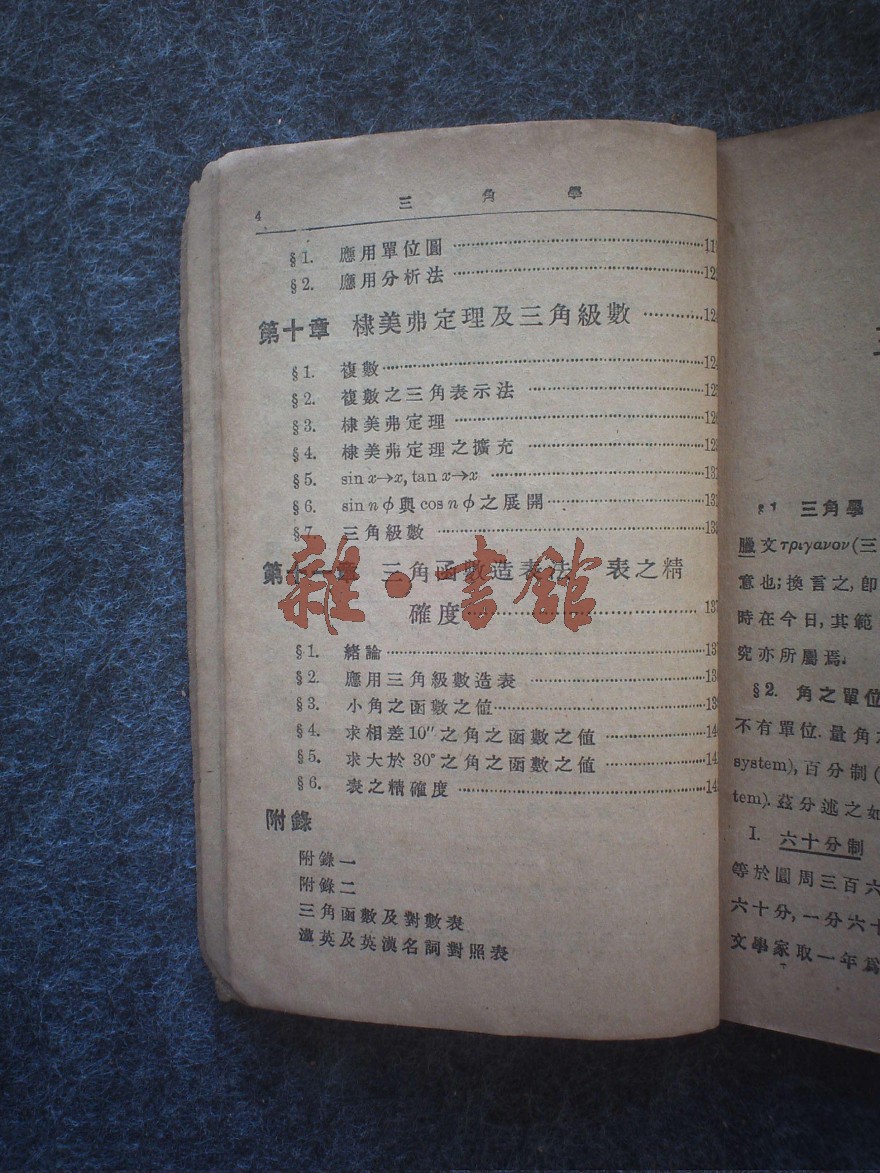 4 三角學
§1. 應用單位圓
§2. 應用分析法
第十章 棣美弗定理及三角級數
§1. 複數
§2. 複數之三角表示法
§3. 棣美弗定理
§4. 棣美弗定理之擴充
§5. sin x→x, tan x→x
§6. sin n ϕ與 cos n ϕ之展開
§7. 三角級數
第十一章 三角函數造表法 表之精
確度
§1. 緒論
§2. 應用三角級數造表
§3. 小角之函數之值
§4. 求相差10″之角之函數之值
§5. 求大於30°之角之函數之值
§6. 表之精確度
附錄
附錄一
附錄二
三角函數及對數表
漢英及英漢名詞對照表
雜·書館
三角學
臘文τριγανον(三
意也;換言之,卽
時在今日,其範
究亦所屬焉.
§2. 角之單位
不有單位.量角
system),百分制(
tem).茲分述之如
I. 六十分制
等於圓周三百六
六十分,一分六十
文學家取一年爲